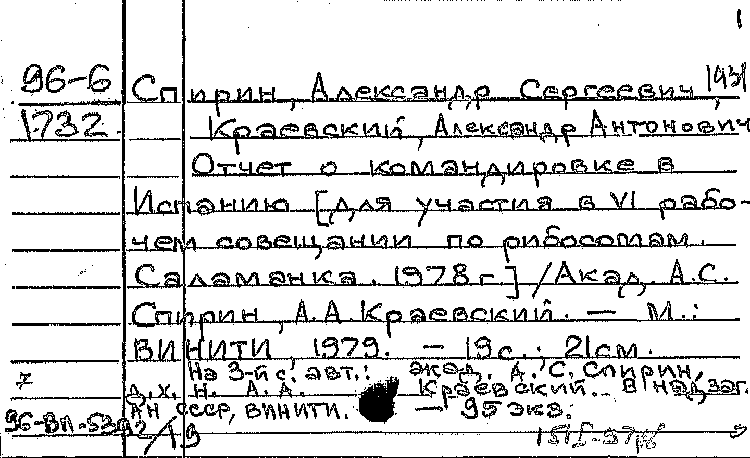 1
96-6 Спирин, Александр Сергеевич, 1931
1732 Краевский, Александр Антонович
Отчет о командировке в
Испанию [для участия в VI рабо-
чем совещании по рибосомам.
Саламанка. 1978 г.] / Акад. А.С.
Спирин, А.А. Краевский. — М.:
ВИНИТИ, 1979. — 19 с.; 21 см.
На 3-й с. авт.: акад. А. С. Спирин,
д.х.н. А.А. Краевский. В надзаг.
АН СССР, ВИНИТИ. — 95 экз.